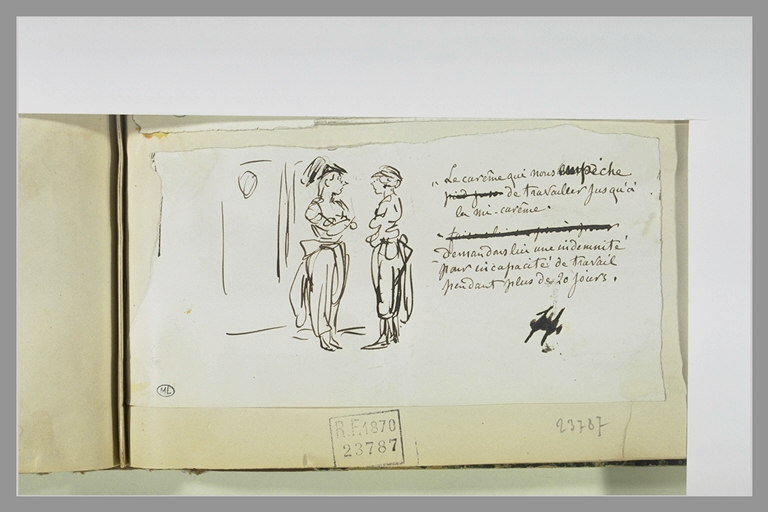 „ Le carême qui nous empêche
de travailler jusqu'à
la mi-carême.
Demandons lui une indemnité
pour incapacité de travail
pendant plus de 20 jours.
ML
R.F.1870
23787
23787